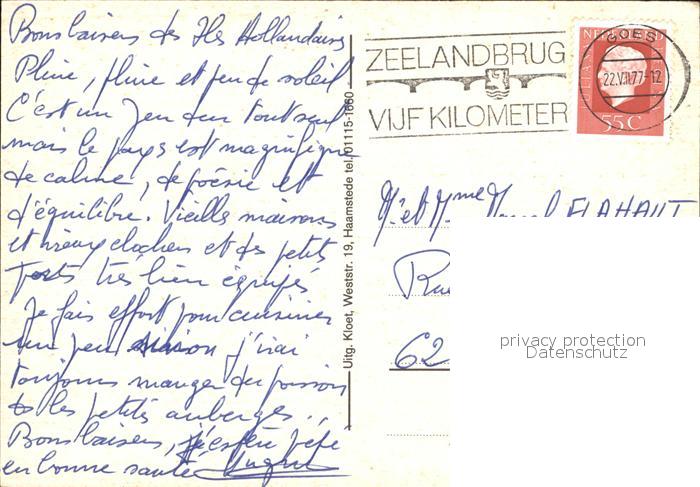 Bons baisers des Iles Hollandaises
Pluie, pluie et peu de soleil
C'est un peu dur tout seul
mais le pays est magnifique
de calme, de poésie et
d'équilibre. Vieilles maisons
et vieux clochers et des petits
ports très bien équipés
Je fais effort pour cuisiner
un peu sinon j'irai
toujours manger du poisson
ds les petites auberges..
Bons baisers, j'espère pépé
en bonne santé
Uitg. Kloet, Weststr. 19, Haamstede tel. 01115-1660
ZEELANDBRUG
VIJF KILOMETER
GOES
22.VII.77-12
NEDERLAND
55 C
M. et Mme DELAHAUT
Rue
62
privacy protection
Datenschutz